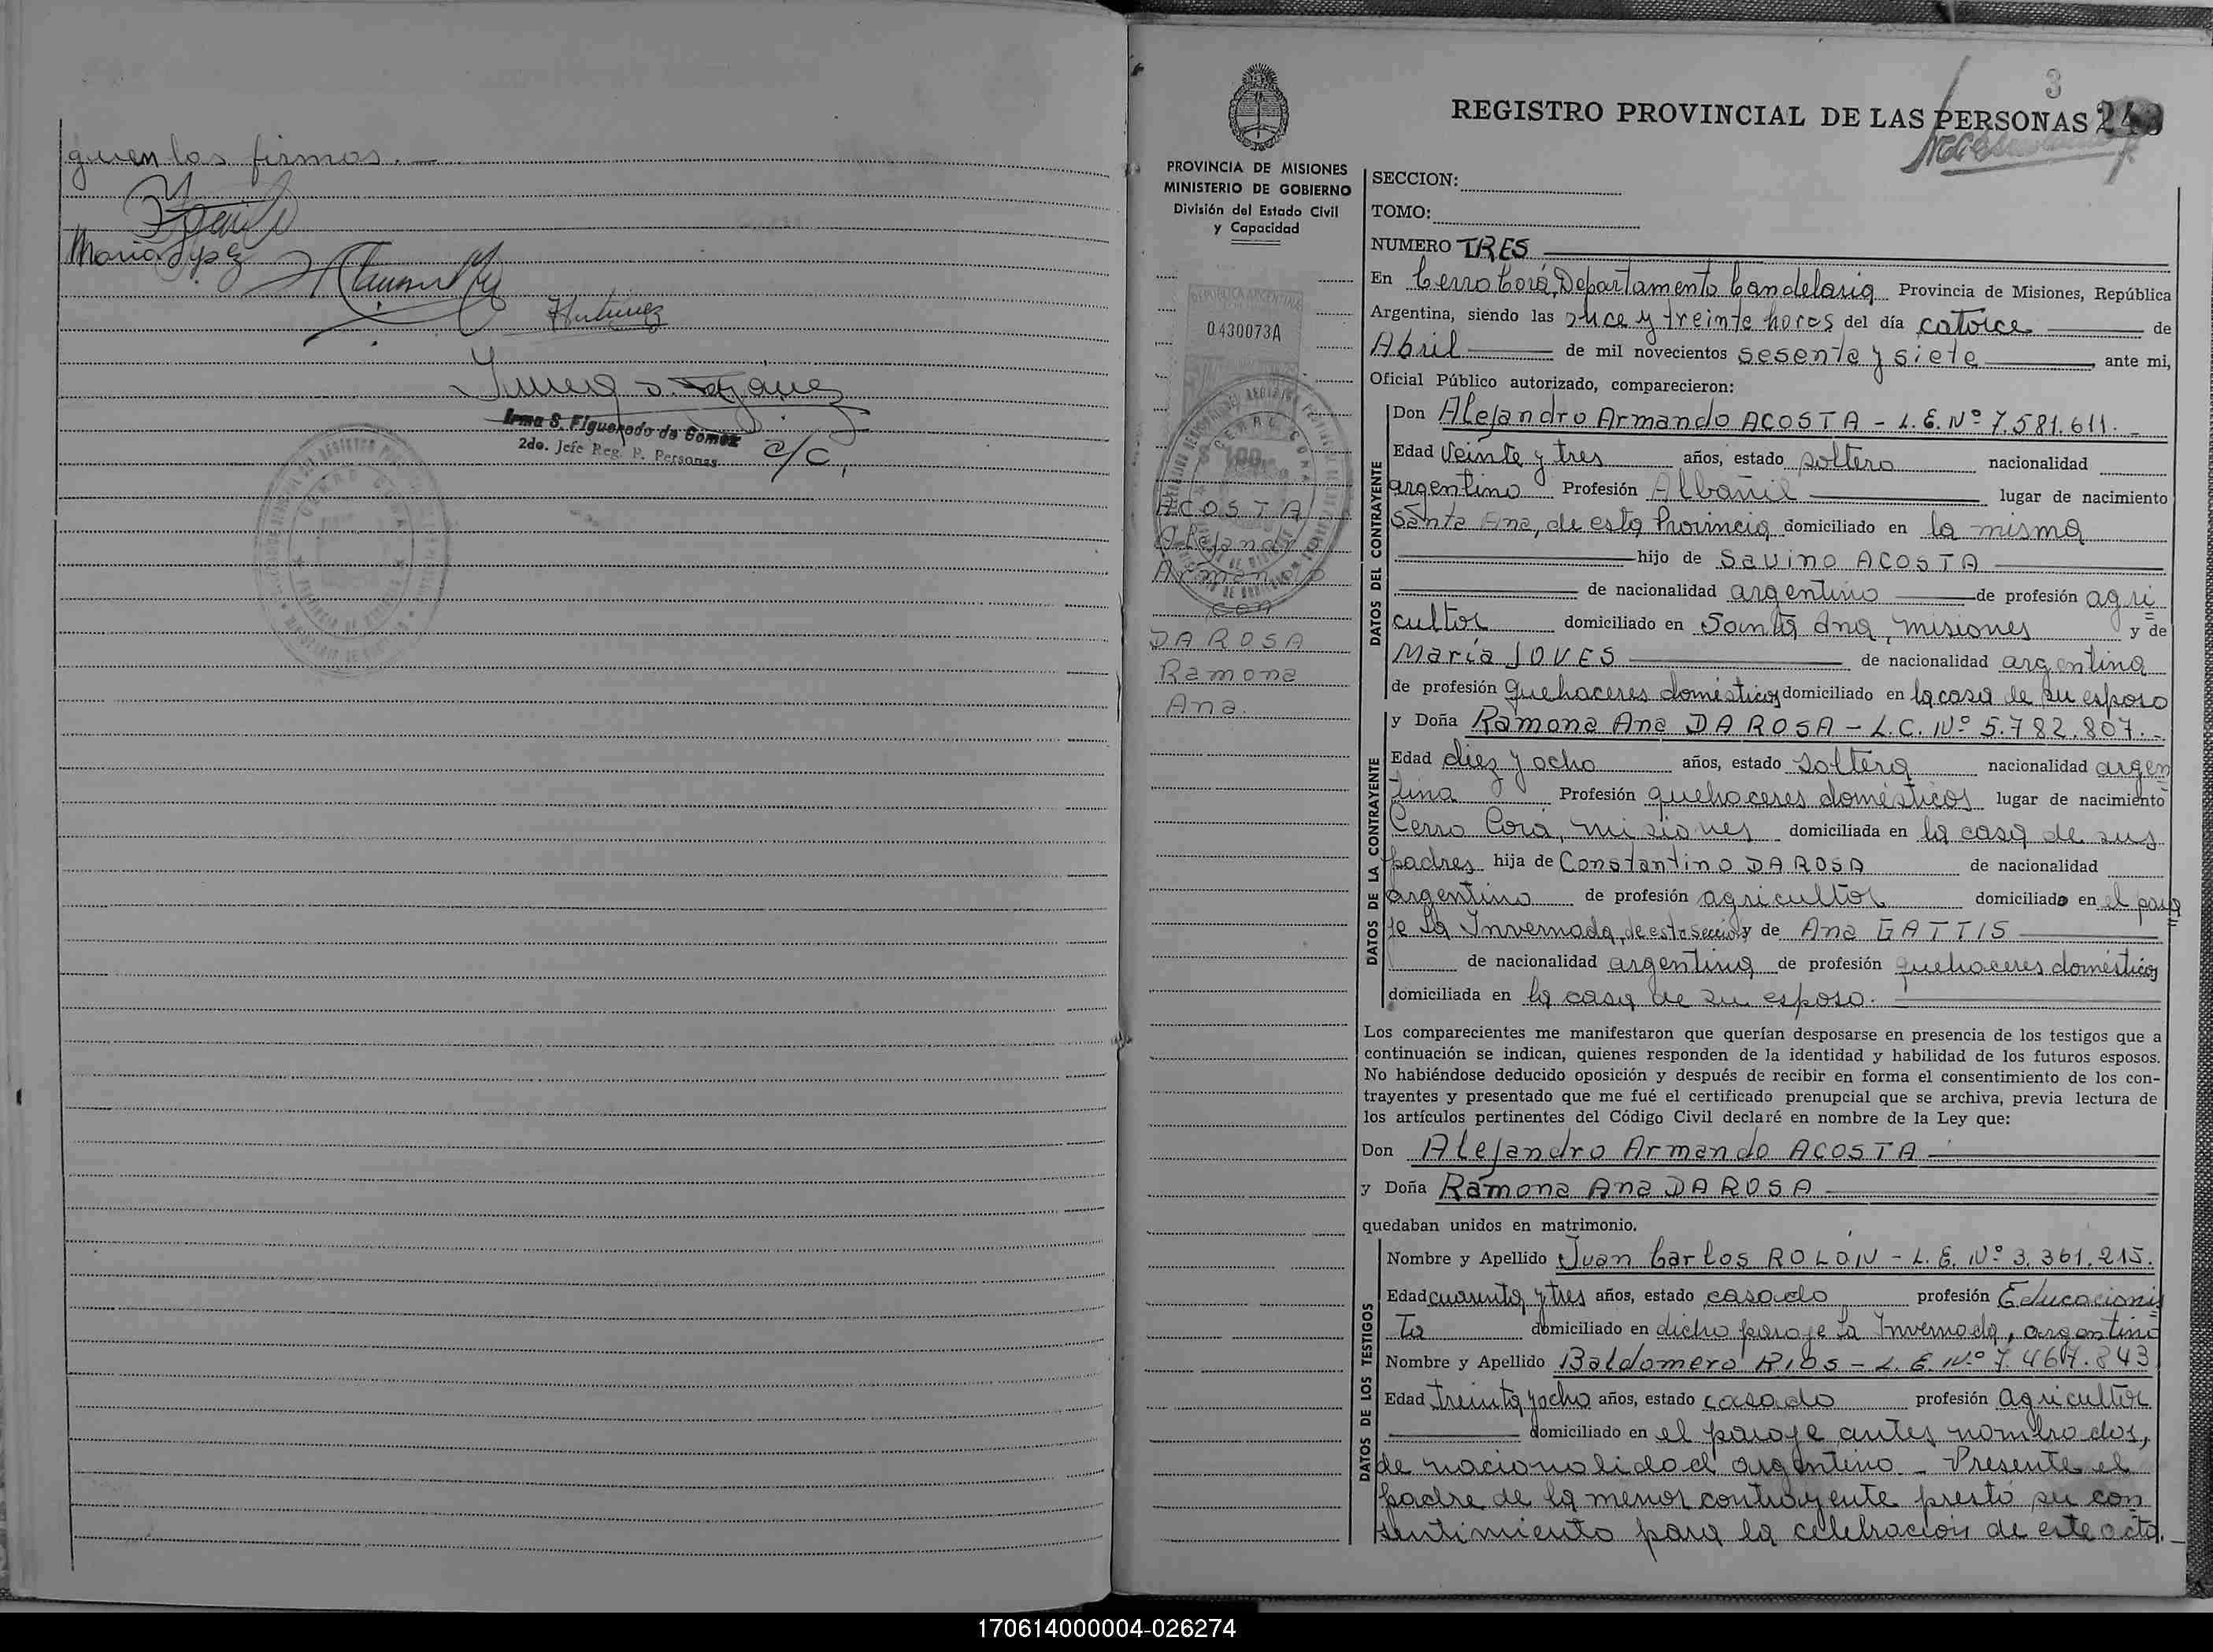 quien las firmas. —
Maria
Irma S. Figueredo de Gómez
2do. Jefe Reg. P. Personas
a/c,
3
REGISTRO PROVINCIAL DE LAS PERSONAS
PROVINCIA DE MISIONES
MINISTERIO DE GOBIERNO
División del Estado Civil
y Capacidad
REPUBLICA ARGENTINA
0430073A
ACOSTA
Alejandro
Armando
con
DA ROSA
Ramona
Ana.
SECCION:
TOMO:
NUMERO TRES
En Cerro Corá, Departamento Candelaria Provincia de Misiones, República
Argentina, siendo las once y treinta horas del día catorce de
Abril de mil novecientos sesenta y siete ante mi,
Oficial Público autorizado, comparecieron:
DATOS DEL CONTRAYENTE
Don Alejandro Armando ACOSTA - L.E. Nº 7.581.611.-
Edad veinte y tres años, estado soltero nacionalidad
argentino Profesión Albañil lugar de nacimiento
Santa Ana, de esta Provincia domiciliado en la misma
hijo de Savino ACOSTA
de nacionalidad argentino de profesión agri
cultor domiciliado en Santa Ana, Misiones y de
María JOVES de nacionalidad argentina
de profesión quehaceres domésticos domiciliado en la casa de su esposo
y Doña Ramona Ana DA ROSA - L.C. Nº 5.782.807.-
DATOS DE LA CONTRAYENTE
Edad diez y ocho años, estado soltera nacionalidad argen
tina Profesión quehaceres domésticos lugar de nacimiento
Cerro Corá, Misiones domiciliada en la casa de sus
padres hija de Constantino DA ROSA de nacionalidad
argentino de profesión agricultor domiciliado en el para
je La Invernada, de esta sección y de Ana GATTIS
de nacionalidad argentina de profesión quehaceres domésticos
domiciliada en la casa de su esposo.
Los comparecientes me manifestaron que querían desposarse en presencia de los testigos que a
continuación se indican, quienes responden de la identidad y habilidad de los futuros esposos.
No habiéndose deducido oposición y después de recibir en forma el consentimiento de los con-
trayentes y presentado que me fué el certificado prenupcial que se archiva, previa lectura de
los artículos pertinentes del Código Civil declaré en nombre de la Ley que:
Don Alejandro Armando ACOSTA
y Doña Ramona Ana DA ROSA
quedaban unidos en matrimonio.
DATOS DE LOS TESTIGOS
Nombre y Apellido Juan Carlos ROLÓN - L.E. Nº 3.361.215.
Edad cuarenta y tres años, estado casado profesión Educacionis
ta domiciliado en dicho paraje La Invernada, argentino
Nombre y Apellido Baldomero RIOS - L.E. Nº 7.467.843
Edad treinta y ocho años, estado casado profesión agricultor
domiciliado en el paraje antes nombrados,
de nacionalidad argentino - Presente el
padre de la menor contrayente prestó su con
sentimiento para la celebración de este acto.
170614000004-026274